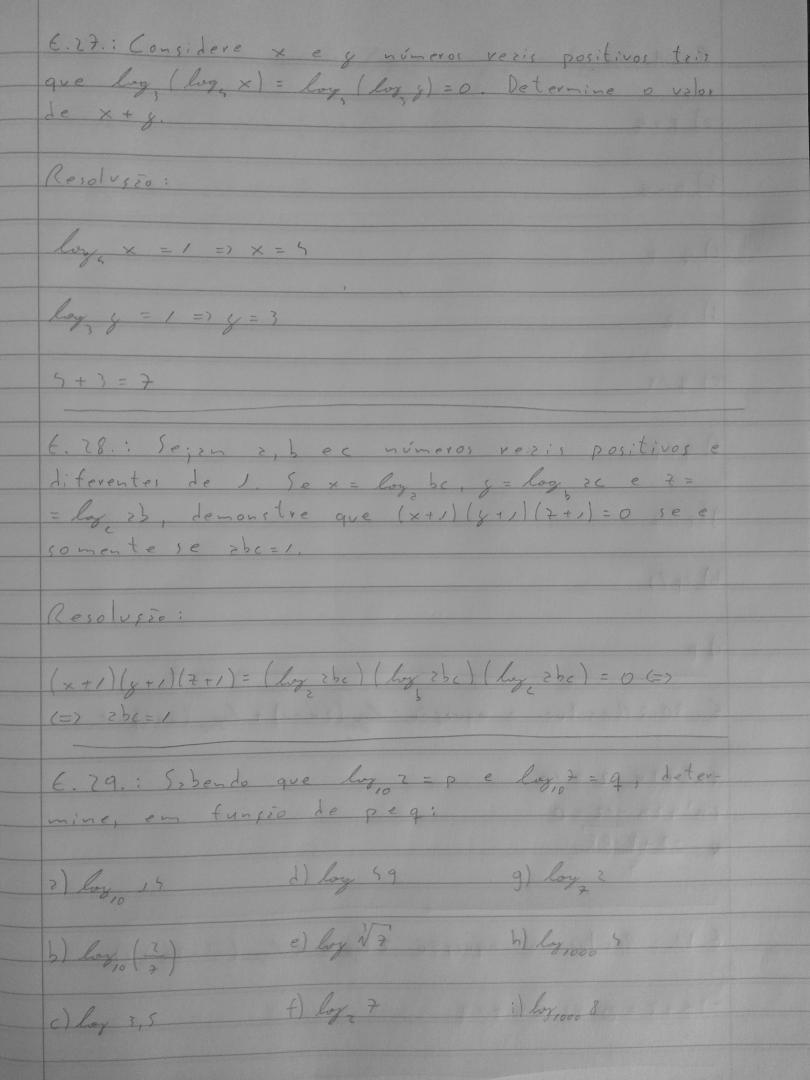 E.27.: Considere x e y números reais positivos tais
que log₃ (log₄ x) = log₃ (log₃ y) = 0. Determine o valor
de x + y.
Resolução:
log₄ x = 1 => x = 4
log₃ y = 1 => y = 3
4 + 3 = 7
E.28.: Sejam a, b e c números reais positivos e
diferentes de 1. Se x = logₐ bc, y = log_b ac e z =
= log_c ab, demonstre que (x+1)(y+1)(z+1) = 0 se e
somente se abc = 1.
Resolução:
(x+1)(y+1)(z+1) = (logₐ abc)(log_b abc)(log_c abc) = 0 <=>
<=> abc = 1
E.29.: Sabendo que log₁₀ 2 = p e log₁₀ 7 = q, deter-
mine, em função de p e q:
a) log₁₀ 14 d) log 49 g) log₇ 2
b) log₁₀ (2/7) e) log ∛7 h) log₁₀₀₀ 4
c) log 3,5 f) log₂ 7 i) log₁₀₀₀ 8